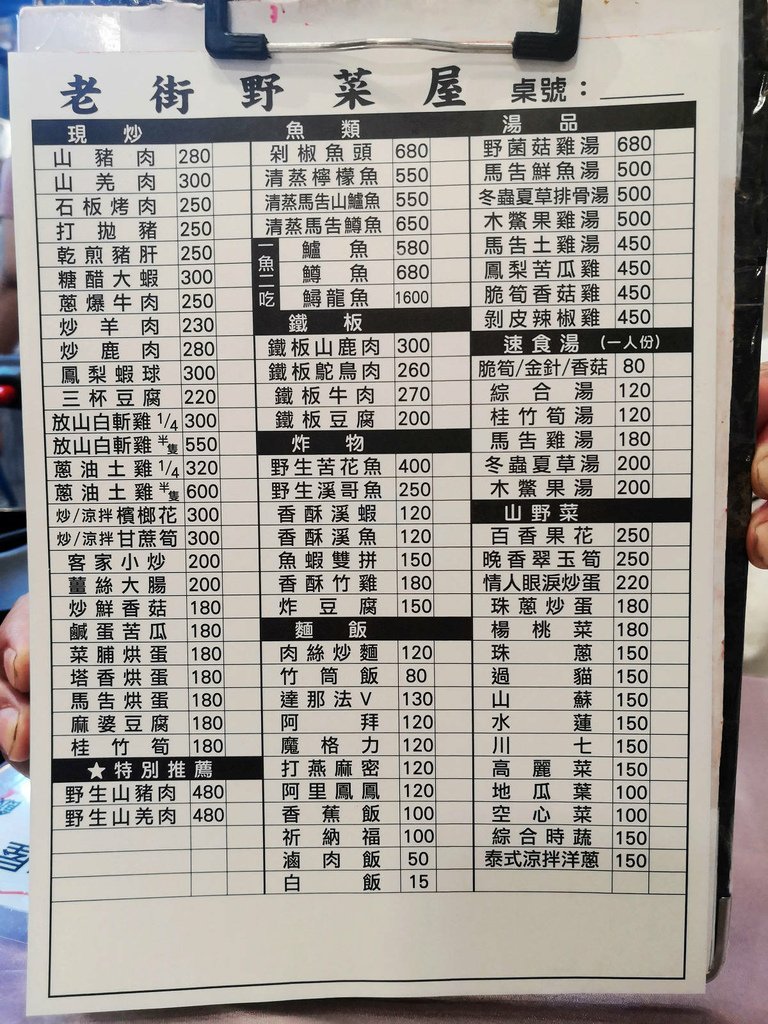 老街野菜屋 桌號：
現炒
山豬肉 280
山羌肉 300
石板烤肉 250
打拋豬 250
乾煎豬肝 250
糖醋大蝦 300
蔥爆牛肉 250
炒羊肉 230
炒鹿肉 280
鳳梨蝦球 300
三杯豆腐 220
放山白斬雞1/4 300
放山白斬雞半隻 550
蔥油土雞1/4 320
蔥油土雞半隻 600
炒/涼拌檳榔花 300
炒/涼拌甘蔗筍 300
客家小炒 200
薑絲大腸 200
炒鮮香菇 180
鹹蛋苦瓜 180
菜脯烘蛋 180
塔香烘蛋 180
馬告烘蛋 180
麻婆豆腐 180
桂竹筍 180
★特別推薦
野生山豬肉 480
野生山羌肉 480
魚類
剁椒魚頭 680
清蒸檸檬魚 550
清蒸馬告山鱸魚 550
清蒸馬告鱒魚 650
一魚二吃
鱸魚 580
鱒魚 680
鱘龍魚 1600
鐵板
鐵板山鹿肉 300
鐵板鴕鳥肉 260
鐵板牛肉 270
鐵板豆腐 200
炸物
野生苦花魚 400
野生溪哥魚 250
香酥溪蝦 120
香酥溪魚 120
魚蝦雙拼 150
香酥竹雞 180
炸豆腐 150
麵飯
肉絲炒麵 120
竹筒飯 80
達那法V 130
阿拜 120
魔格力 120
打燕麻密 120
阿里鳳鳳 120
香蕉飯 100
祈納福 100
滷肉飯 50
白飯 15
湯品
野菌菇雞湯 680
馬告鮮魚湯 500
冬蟲夏草排骨湯 500
木鱉果雞湯 500
馬告土雞湯 450
鳳梨苦瓜雞 450
脆筍香菇雞 450
剝皮辣椒雞 450
速食湯（一人份）
脆筍/金針/香菇 80
綜合湯 120
桂竹筍湯 120
馬告雞湯 180
冬蟲夏草湯 200
木鱉果湯 200
山野菜
百香果花 250
晚香翠玉筍 250
情人眼淚炒蛋 220
珠蔥炒蛋 180
楊桃菜 180
珠蔥 150
過貓 150
山蘇 150
水蓮 150
川七 150
高麗菜 150
地瓜葉 100
空心菜 100
綜合時蔬 150
泰式涼拌洋蔥 150